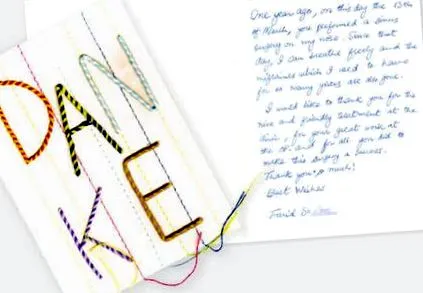 DAN
KE
One year ago, on this day the 13th
of March, you performed a sinus
surgery on my nose. Since that
day, I can breathe freely and the
migraines which I used to have
for so many years are also gone.
I would like to thank you for the
nice and friendly treatment at the
clinic, for your great work at
the OP and for all you did to
make this surgery a success.
Thank you so much!
Best Wishes
Farid